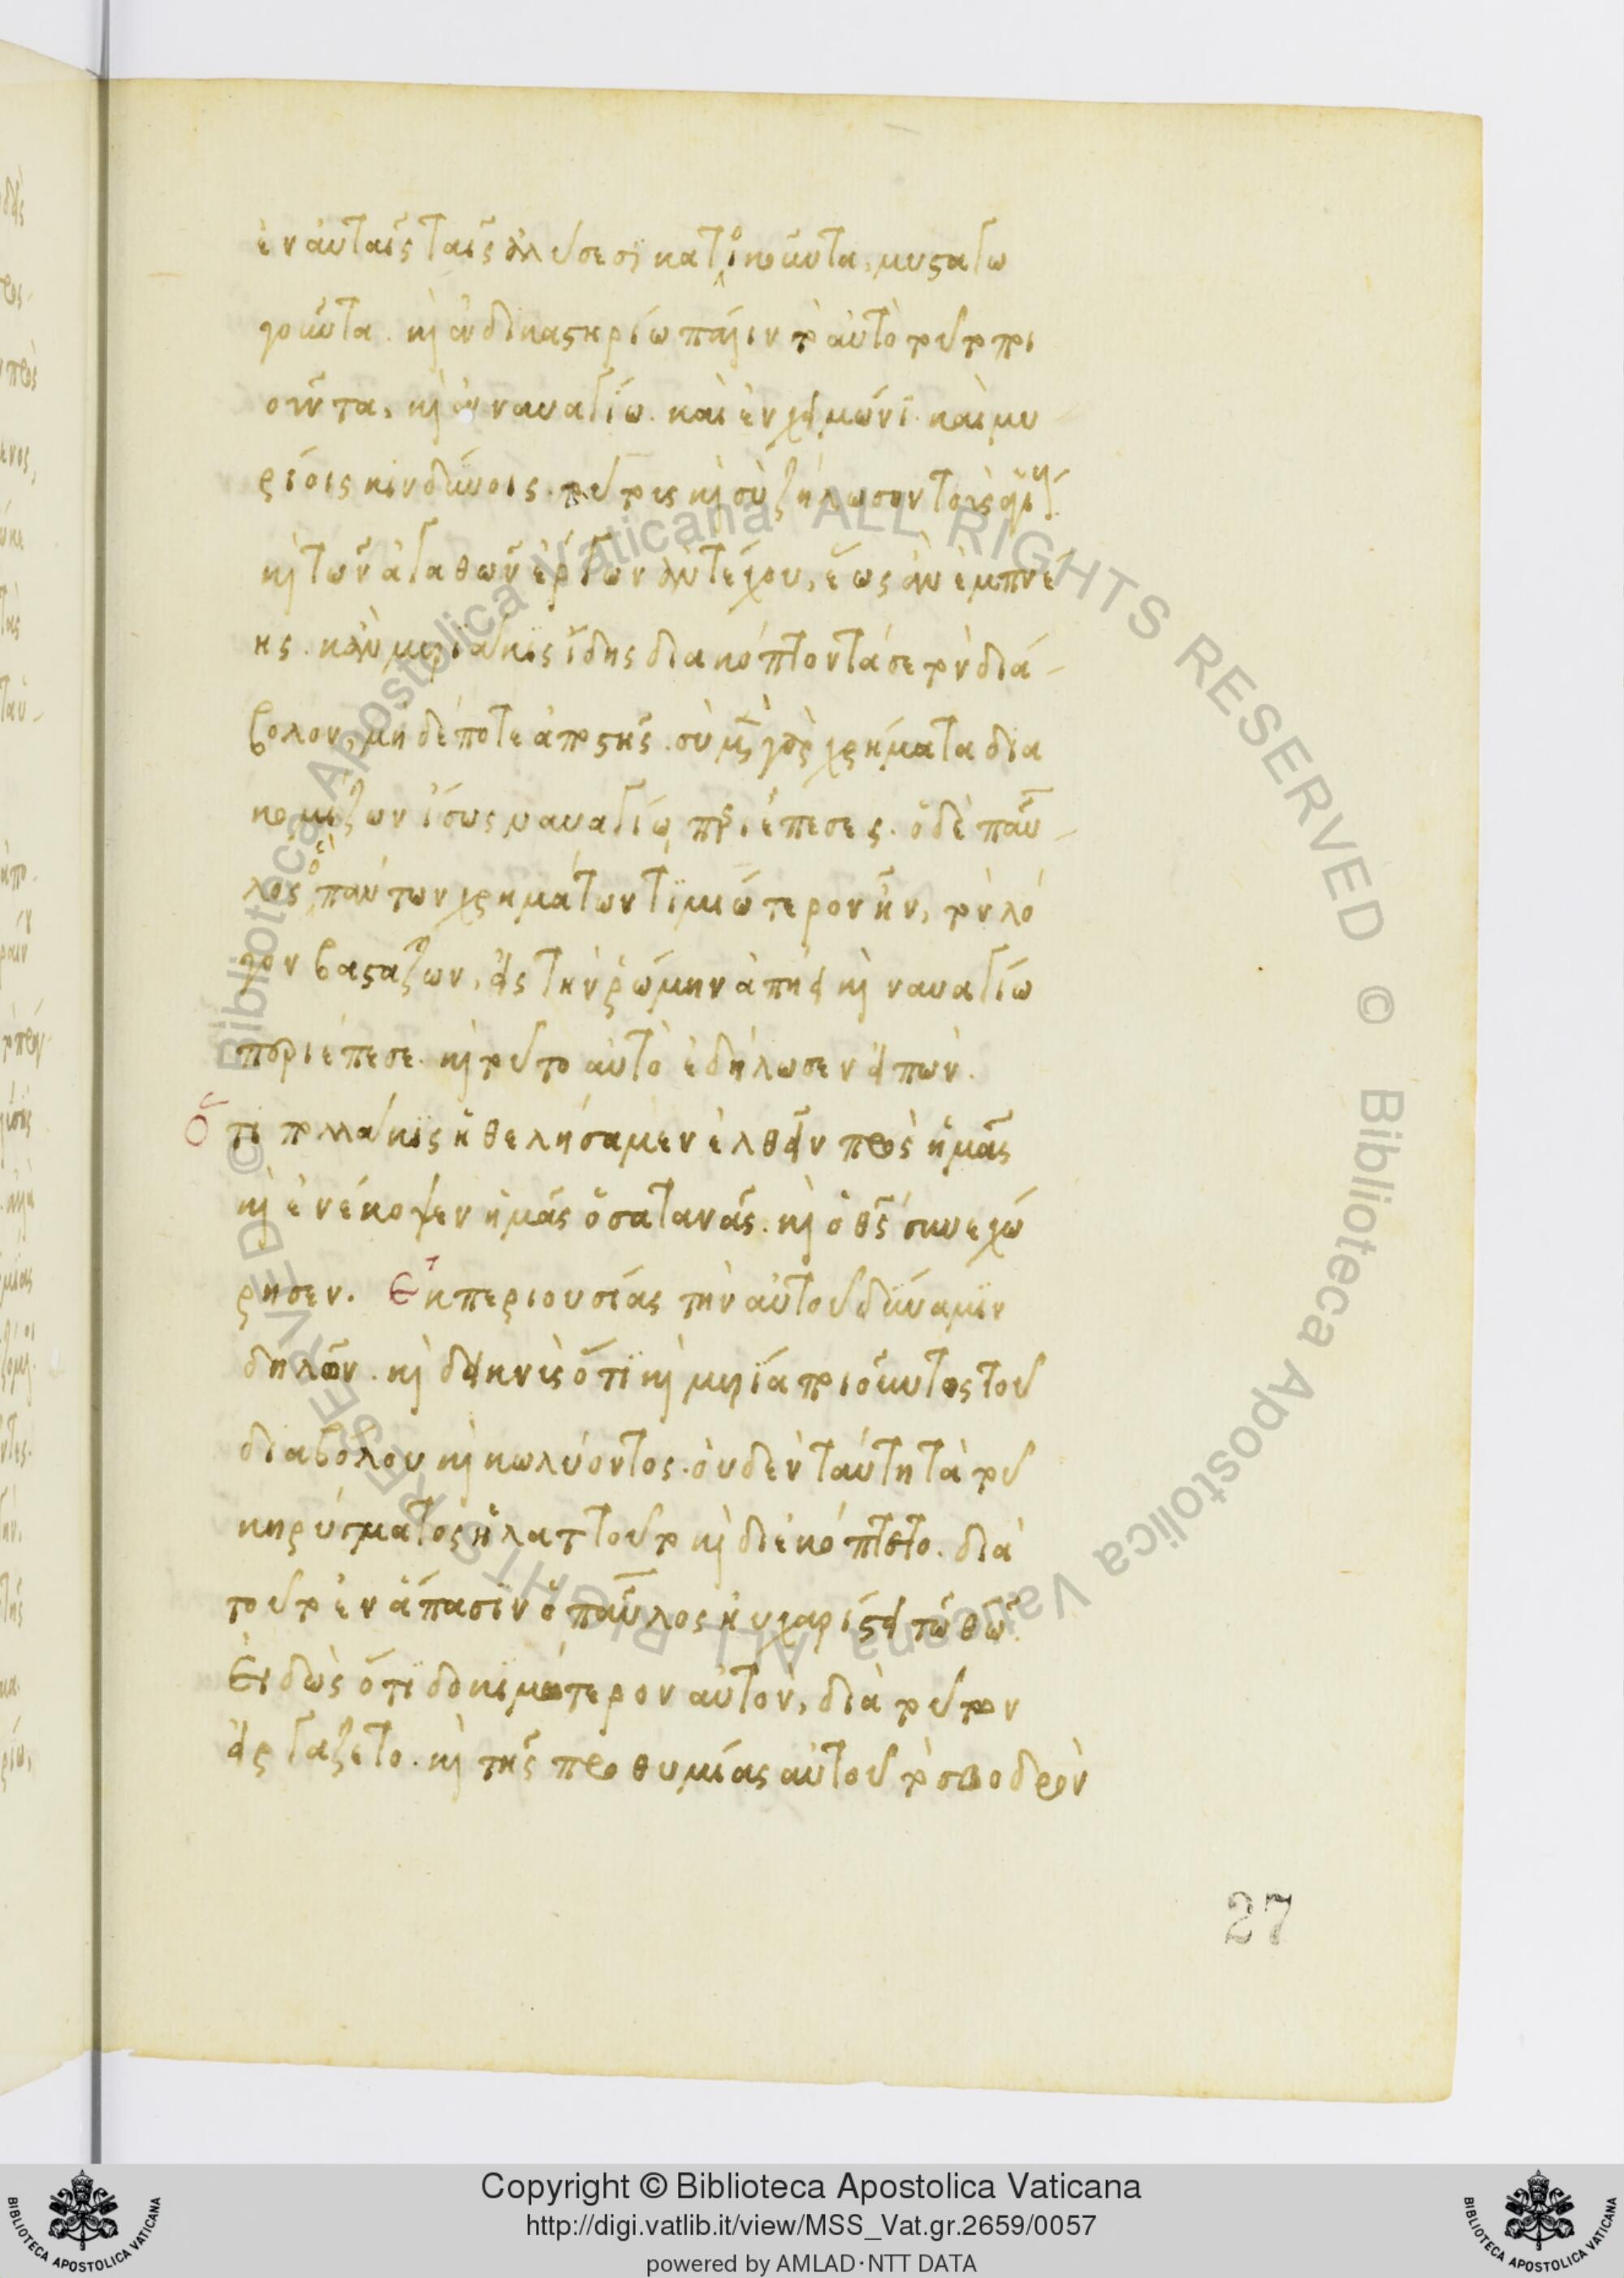 ἐν αὐταῖς ταῖς ἁλύσεσι κατοικοῦντα, μυσταγω
γοῦντα. καὶ ἐν δικαστηρίω πάλιν τὸ αὐτὸ τοῦτο ποι
οῦντα, καὶ ἐν ναυαγίω. καὶ ἐν χειμῶνι. καὶ μυ
ρίοις κινδύνοις. τούτους καὶ σὺ ζήλωσον τοὺς ἁγίους
καὶ τῶν ἀγαθῶν ἔργων ἀντέχου, ἕως ἂν ἐμπνέ
ης. κἂν μυριάκις ἴδης διακόπτοντά σε τὸν διά-
βολον, μηδέποτε ἀποστῆς. σὺ μὲν γὰρ χρήματα δια
κομίζων ἴσως ναυαγίω περιέπεσες. ὁ δὲ παῦ-
λος ὃ πάντων χρημάτων τιμιώτερον ἦν, τὸν λό
γον βαστάζων, εἰς τὴν ῥώμην ἀπήει καὶ ναυαγίω
περιέπεσε. καὶ τοῦτο αὐτὸ ἐδήλωσεν εἰπών.
Ὅτι πολλάκις ἠθελήσαμεν ἐλθεῖν πρὸς ἡμᾶς
καὶ ἐνέκοψεν ἡμᾶς ὁ σατανᾶς. καὶ ὁ θς συνεχώ
ρησεν. Ἐκ περιουσίας τὴν αὐτοῦ δύναμιν
δηλῶν. καὶ δεικνὺς ὅτι καὶ μυρία ποιοῦντος τοῦ
διαβόλου καὶ κωλύοντος. οὐδὲν ταύτη τὰ τοῦ
κηρύγματος ἠλαττοῦτο καὶ διεκόπτετο. διὰ
τοῦτο ἐν ἅπασιν ὁ παῦλος ηὐχαρίστει τῶ θῶ.
Εἰδὼς ὅτι δοκιμώτερον αὐτὸν, διὰ τούτων
εἰργάζετο. καὶ τῆς προθυμίας αὐτοῦ τὸ σφοδρὸν
27
Copyright © Biblioteca Apostolica Vaticana
http://digi.vatlib.it/view/MSS_Vat.gr.2659/0057
powered by AMLAD·NTT DATA